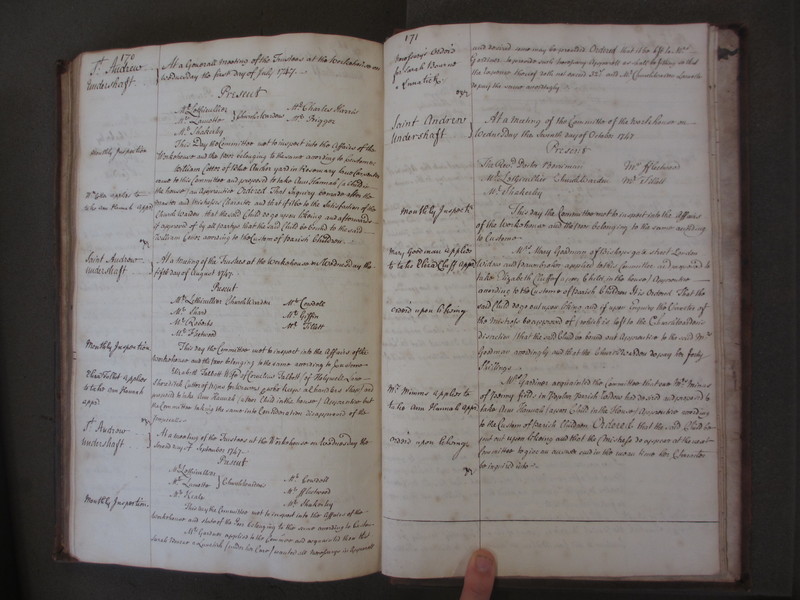 170
St. Andrew
Undershaft
At a Generall meeting of the Trustees at the Workehouse on
Wednesday the first day of July 1747.
Present
Mr. Lethieullier
Mr. Charles Harris
Mr. Lamotter
Churchwardens
Mr. Brigges
Mr. Shakerly
Monthly Inspection
This Day the Committee met to inspect into the Affairs of the
Workehouse and the poor belonging to the same according to Custome
William Cotton of
came to this Committee and proposed to take Ann Hannah (a child in
the house) an Apprentice Ordered That Inquiry be made after the
Master and Mistresses Character and that if
to the Satisfaction of the
Churchwarden that the said Child do go upon likeing and afterwards
if approved of by all partys that the said Child be bound to the said
William Cotton according to the Custom of Parish Children.
applies to
take Ann Hannah App
Saint Andrew
Undershaft
At a Meeting of the Trustees at the Workehouse on Wednesday the
fifth day of August 1747.
Present
Mr. Lethieullier Churchwarden
Mr. Cowdall
Mr. Sard
Mr. Giffin
Mr. Roberts
Mr. Tillott
Mr. Fleetwood
Monthly Inspection
This day the Committee met to inspect into the Affairs of the
Workehouse and the poor belonging to the same according to Custome
Elizabeth Tabbott Wife of Cornelius Tabbott of Holywell
proposed to take Ann Hannah (a poor Child in the house) Apprentice but
the Committee taking the same into Consideration disapproved of the
proposal.
applies
to take Ann Hannah
appr.
St. Andrew
Undershaft
At a Meeting of the Trustees at the Workehouse on Wednesday the
Second day of September 1747.
Present
Mr. Lethieullier
Mr. Cowdall
Mr. Lamotter
Churchwardens
Mr. Fleetwood
Mr. Keate
Mr. Shakerly
Monthly Inspection
This day the Committee met to inspect into the Affairs of the
Workehouse and state of the Poor belonging to the same according to Custome
Mr. Gardner applied to the Committee and acquainted them that
Sarah Bourne a Lunatick (under his Care) wanted some necessarys in Apparell
171
Necessarys Order'd
for Sarah Bourne
a Lunatick
and desired
may be provided Ordered that it be left to Mr.
Gardiner to provide such necessary Apparell as shall be fitting so that
the Expence thereof doth not exceed
and Mr. Churchwarden Lamotte
to pay the same accordingly.
Saint Andrew
Undershaft
At a Meeting of the Committee of the Workehouse on
Wednesday the Seventh day of October 1747
Present
The Revd. Doctor Berriman
Mr. Fleetwood
Mr. Lethieullier Churchwarden
Mr. Tillott
Mr. Shakerly
Monthly Inspectn.
This day the Committee met to inspect into the Affairs
of the Workehouse and the poor belonging to the same according
to Custome
Mary Goodman applies
to take Eliza Cluff Appr.
Mrs. Mary Goodman of Bishopsgate street London
Widow and
applied to this Committee and proposed to
take Elizabeth Cluff (a poor Child in the house) Apprentice
according to the Custome of Parish Children It is Ordered That the
said Child do go out upon likeing and if upon Enquiry the Character of
the Mistress be approved of (which is left to the Churchwardens
discretion) that the said Child be bound out Apprentice to the said Mrs.
Goodman accordingly and that the Churchwarden do pay her forty
Shillings
order'd upon likeing
Mr. Mimms applies to
take Ann Hannah Appr.
Mr. Gardiner acquainted the Committee that one Mr. Mimms
of
fields in
Parish
desired and proposed to
take Ann Hannah (a poor Child in the House) Apprentice according
to the Custom of Parish Children Ordered that the said Child be
put out upon likeing and that the Mistress do appear at the next
Committee to give an answer and in the mean time her Character
be inquired into
order'd upon likeing